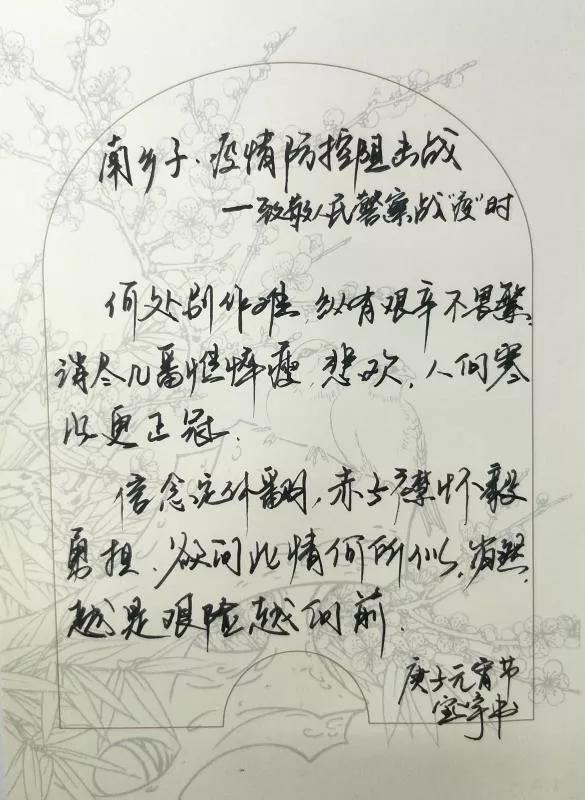 南乡子·疫情防控阻击战
—致敬人民警察战“疫”时
何处别作难,纵有艰辛不畏繁,
谱尽几番憔悴瘦,悲欢,人间寒
心更正冠.
信念定外翻,赤步襟怀毅
勇担,欲问此情何所似,岿然,
越是艰险越向前.
庚子元宵节
宝宇书